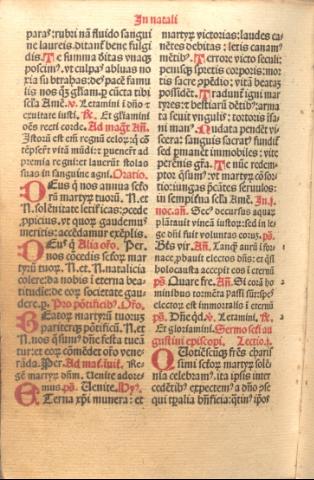 In natali
paras: rubri nā fluido sangui
ne laureis. ditant̄ bene fulgi
dis. Te summa ō deitas vnaq̄
poscim⁹. vt culpas abluas no
xia subtrahas: des pacē famu
lis
sc̄la Amē. ℣. Letamini ī dn̄o ⁊
exultate iusti. ℟. Et gl'iamini
oēs recti corde. Ad maḡt. Añ.
Istorū est em̄ regnū celorū: q̄ cō
tēpserūt vitā mūdi: ⁊ puenerūt ad
premia regni: ⁊ lauerūt stolas
suas in sanguine agni. Oratio.
Deus q̄ nos annua scōr̄
martyrū tuorū. N. et
N. solēnitate letificas: ꝯcede
ꝓpicius. vt quorū gaudemus
meritis: accēdamur exēplis.
Deus q̄ Alia or̄o. Per.
nos cōcedis scōrum mar
tyrū tuor̄. N. et. N. natalicia
colere: da nobis ī eterna bea
titudīe: de eorū societate gau
dere. ꝑ. Pro pōtificib⁹. Or̄o.
Beator̄ martyrū tuorum
pariterq̄ pōtificū. N. et
N. nos q̄sum⁹ dn̄e festa tuea
tur: et eorū cōmēdet or̄o vene
rāda. Per. Ad mat. inuit. Re
gē martyrū dn̄m. Uenite adore
mus. ps̄. Uenite. Hy⁹.
Eterna xp̄i munera: et
martyrū victorias: laudes ca
nētes debitas: letis canam⁹
mētib⁹. Terrore victo seculi:
penisq̄ spretis corporis: mor
tis sacre ꝯpēdio: vitā beatā
possidēt. Tradunt̄ igni mar
tyres: ⁊ bestiarū dētib⁹: arma
ta seuit vngulis: tortoris isa
ni man⁹. Nudata pendēt vi
scera: sanguis sacrat⁹ fundit̄
sed pmanēt immobiles: vite
perēnis gr̄a. Te nūc redemp
tor q̄sum⁹: vt martyrū cōsor
tio: iungas p̄cātes seruulos:
in sempiterna sc̄la Amē. In. j.
noc. añ. Sec⁹ decursus aquar̄
plātauit vineā iustor̄: sed in le
ge dn̄i fuit voluntas eorum. ps̄.
Bt̄s vir. Añ. Tanq̄ aurū ī forna
ce. ꝓbauit electos dn̄s: et q̄si
holocausta accepit eos ī eternū
ps̄. Quare fre. Añ. Si corā ho
minibus tormēta passi sūt: spes
elector̄ est immortalis ī eternū
ps̄. Dn̄e q̄d. ℣. Letamini. ℟.
Et gloriamini. Sermo sc̄i au
gustini episcopi. Lectio. j.
Quotiēscūq̄ fr̄es charis
simi sc̄orum martyrū solē
nia celebram⁹. ita ipsis inter
cedētib⁹ expectem⁹ a dn̄o ꝯse
qui